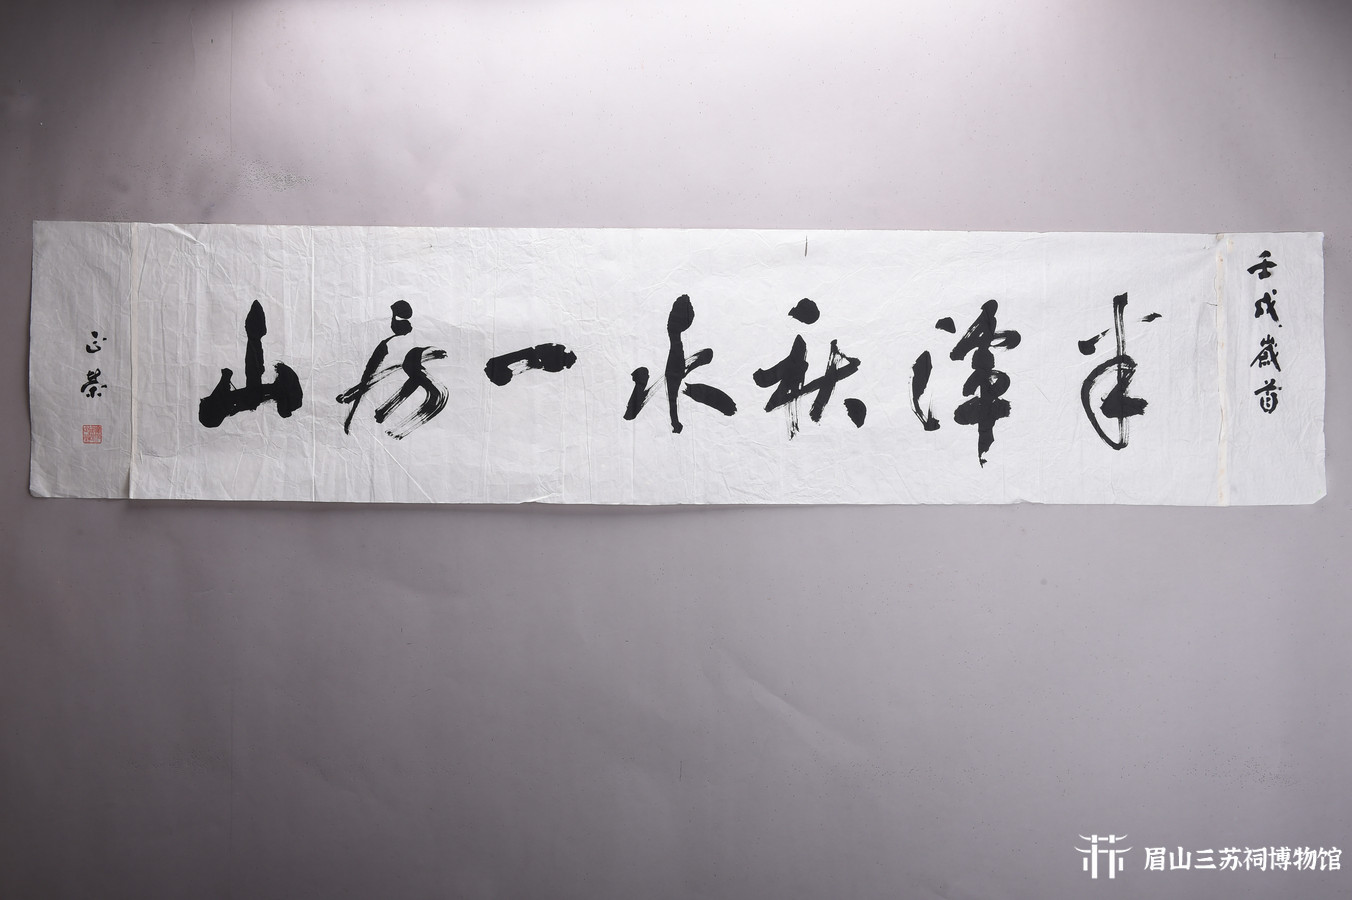 壬戌歲首
半潭秋水一房山
正榮
眉山三苏祠博物馆